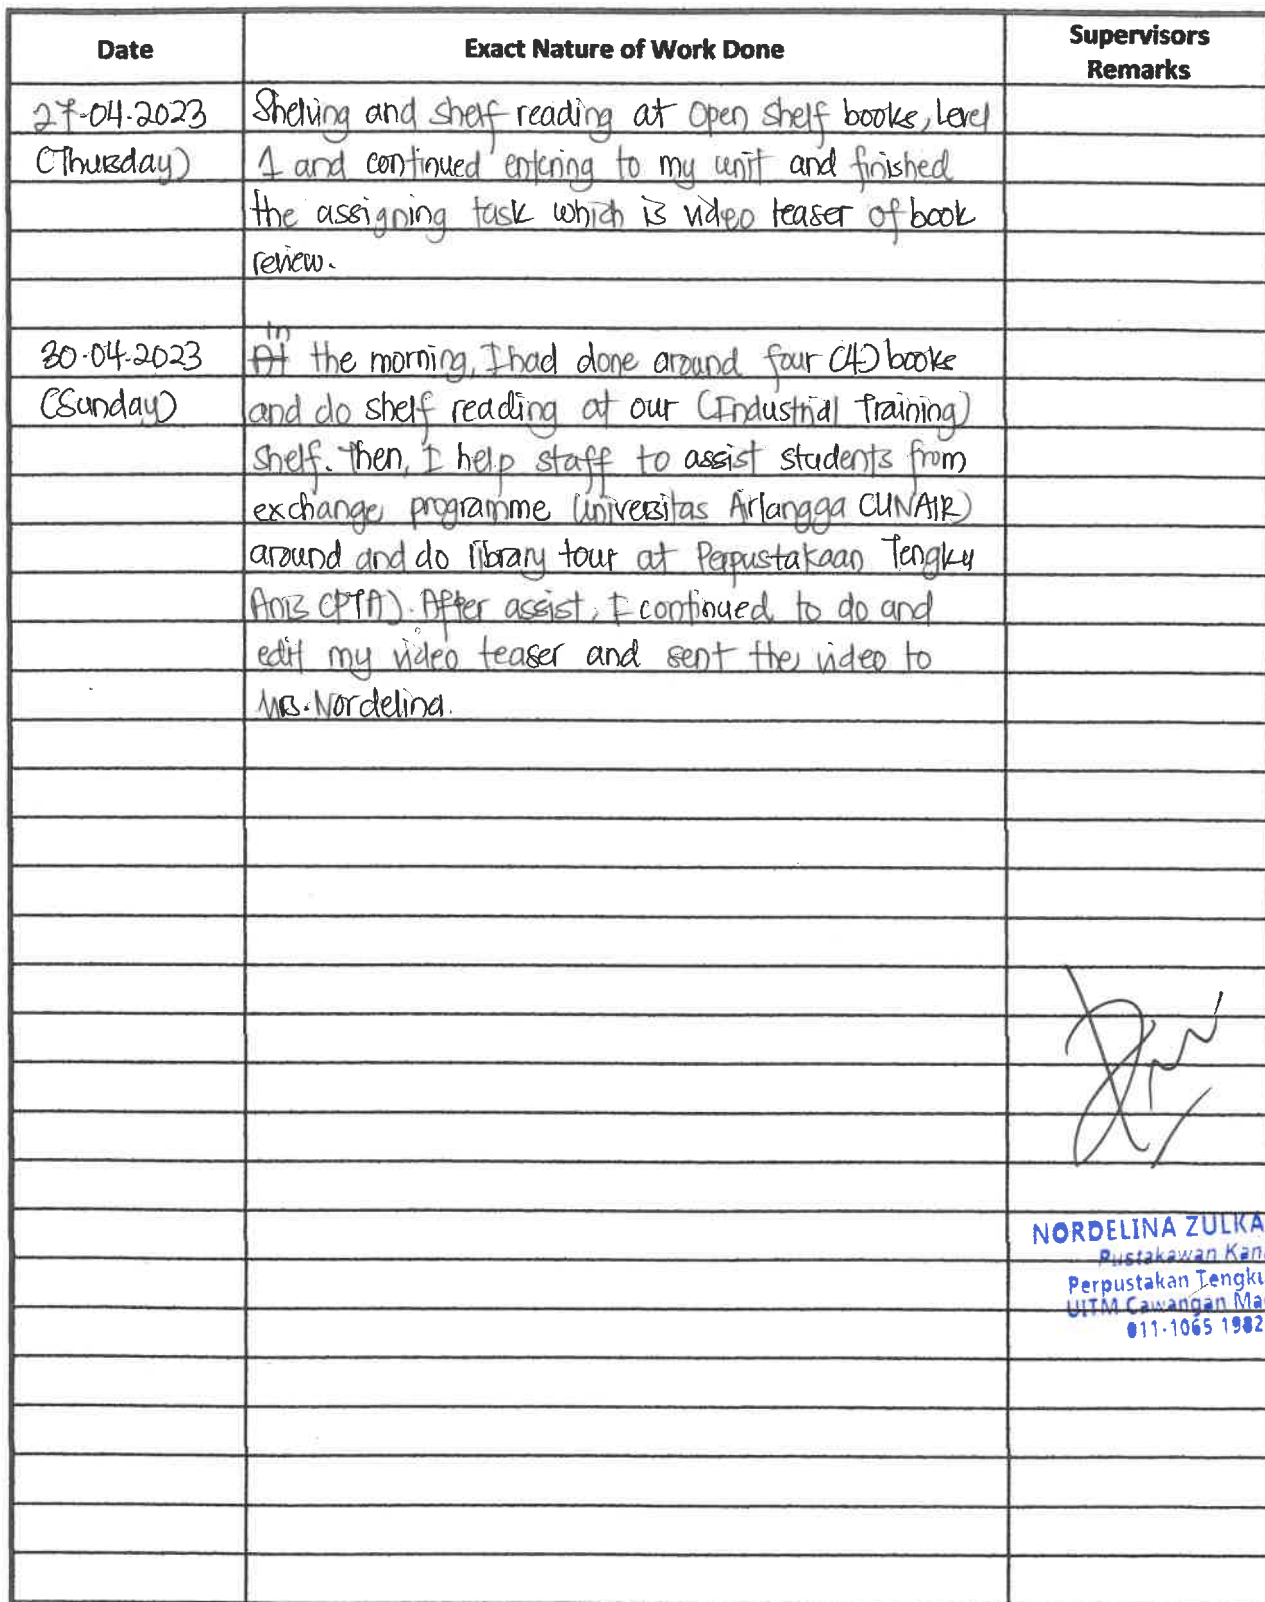 Date
Exact Nature of Work Done
Supervisors
Remarks
27-04-2023
(Thursday)
Shelving and shelf reading at open shelf books, Level
1 and continued entering to my unit and finished
the assigning task which is video teaser of book
review.
30-04-2023
(Sunday)
in
At the morning, I had done around four (4) books
and do shelf reading at our (Industrial Training)
shelf. Then, I help staff to assist students from
exchange programme Universitas Airlangga (UNAIR)
around and do library tour at Perpustakaan Tengku
Anis (PTA). After assist, I continued to do and
edit my video teaser and sent the video to
Mrs. Nordelina.
NORDELINA ZULKA
Pustakawan Kan
Perpustakan Tengku
UITM Cawangan Ma
011-1065 1982